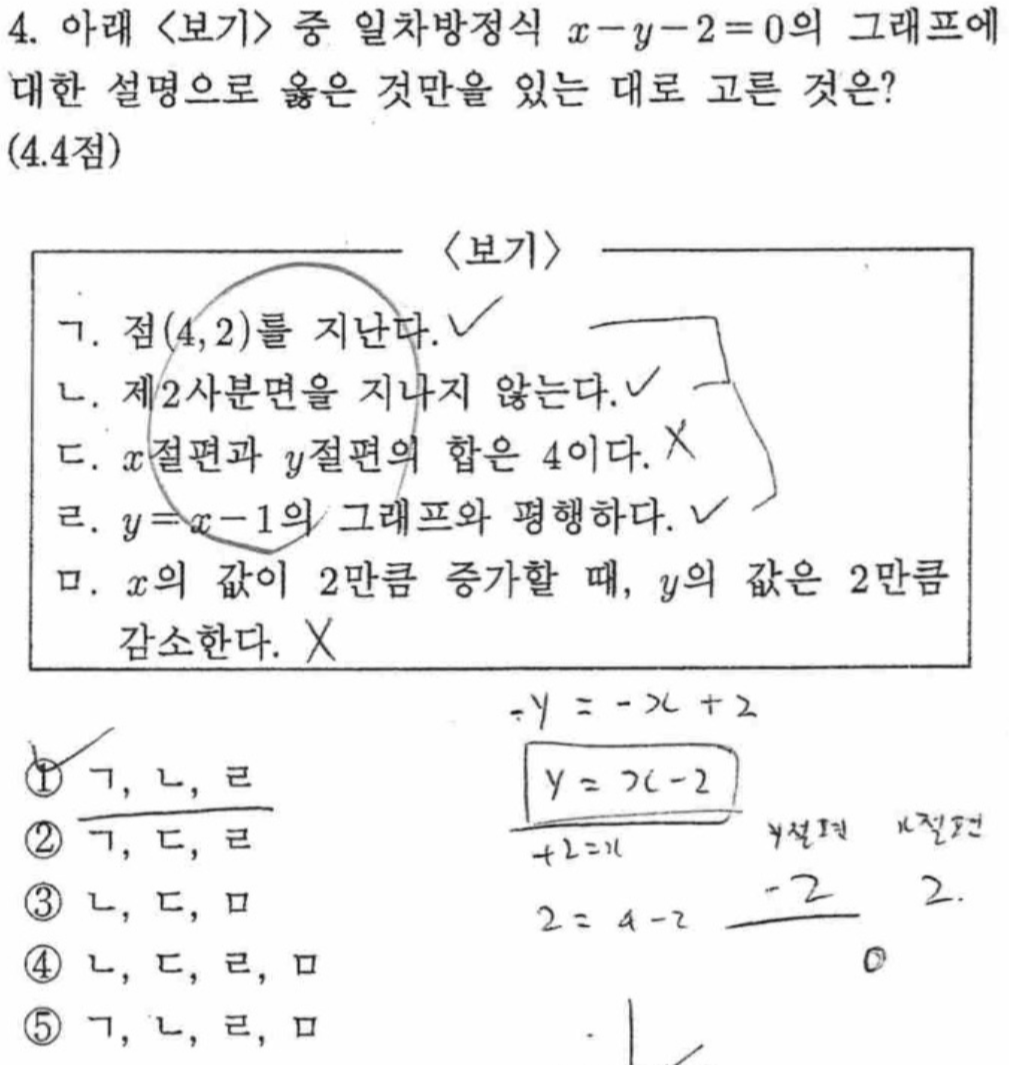 4. 아래 〈보기〉 중 일차방정식 x-y-2=0의 그래프에
대한 설명으로 옳은 것만을 있는 대로 고른 것은?
(4.4점)
〈보기〉
ㄱ. 점(4,2)를 지난다.
ㄴ. 제2사분면을 지나지 않는다.
ㄷ. x절편과 y절편의 합은 4이다. X
ㄹ. y=x-1의 그래프와 평행하다.
ㅁ. x의 값이 2만큼 증가할 때, y의 값은 2만큼
감소한다. X
-y = -x + 2
① ㄱ, ㄴ, ㄹ
y = x-2
② ㄱ, ㄷ, ㄹ
+2=x
y절편 x절편
③ ㄴ, ㄷ, ㅁ
2 = 4-2
-2 2.
④ ㄴ, ㄷ, ㄹ, ㅁ
0
⑤ ㄱ, ㄴ, ㄹ, ㅁ